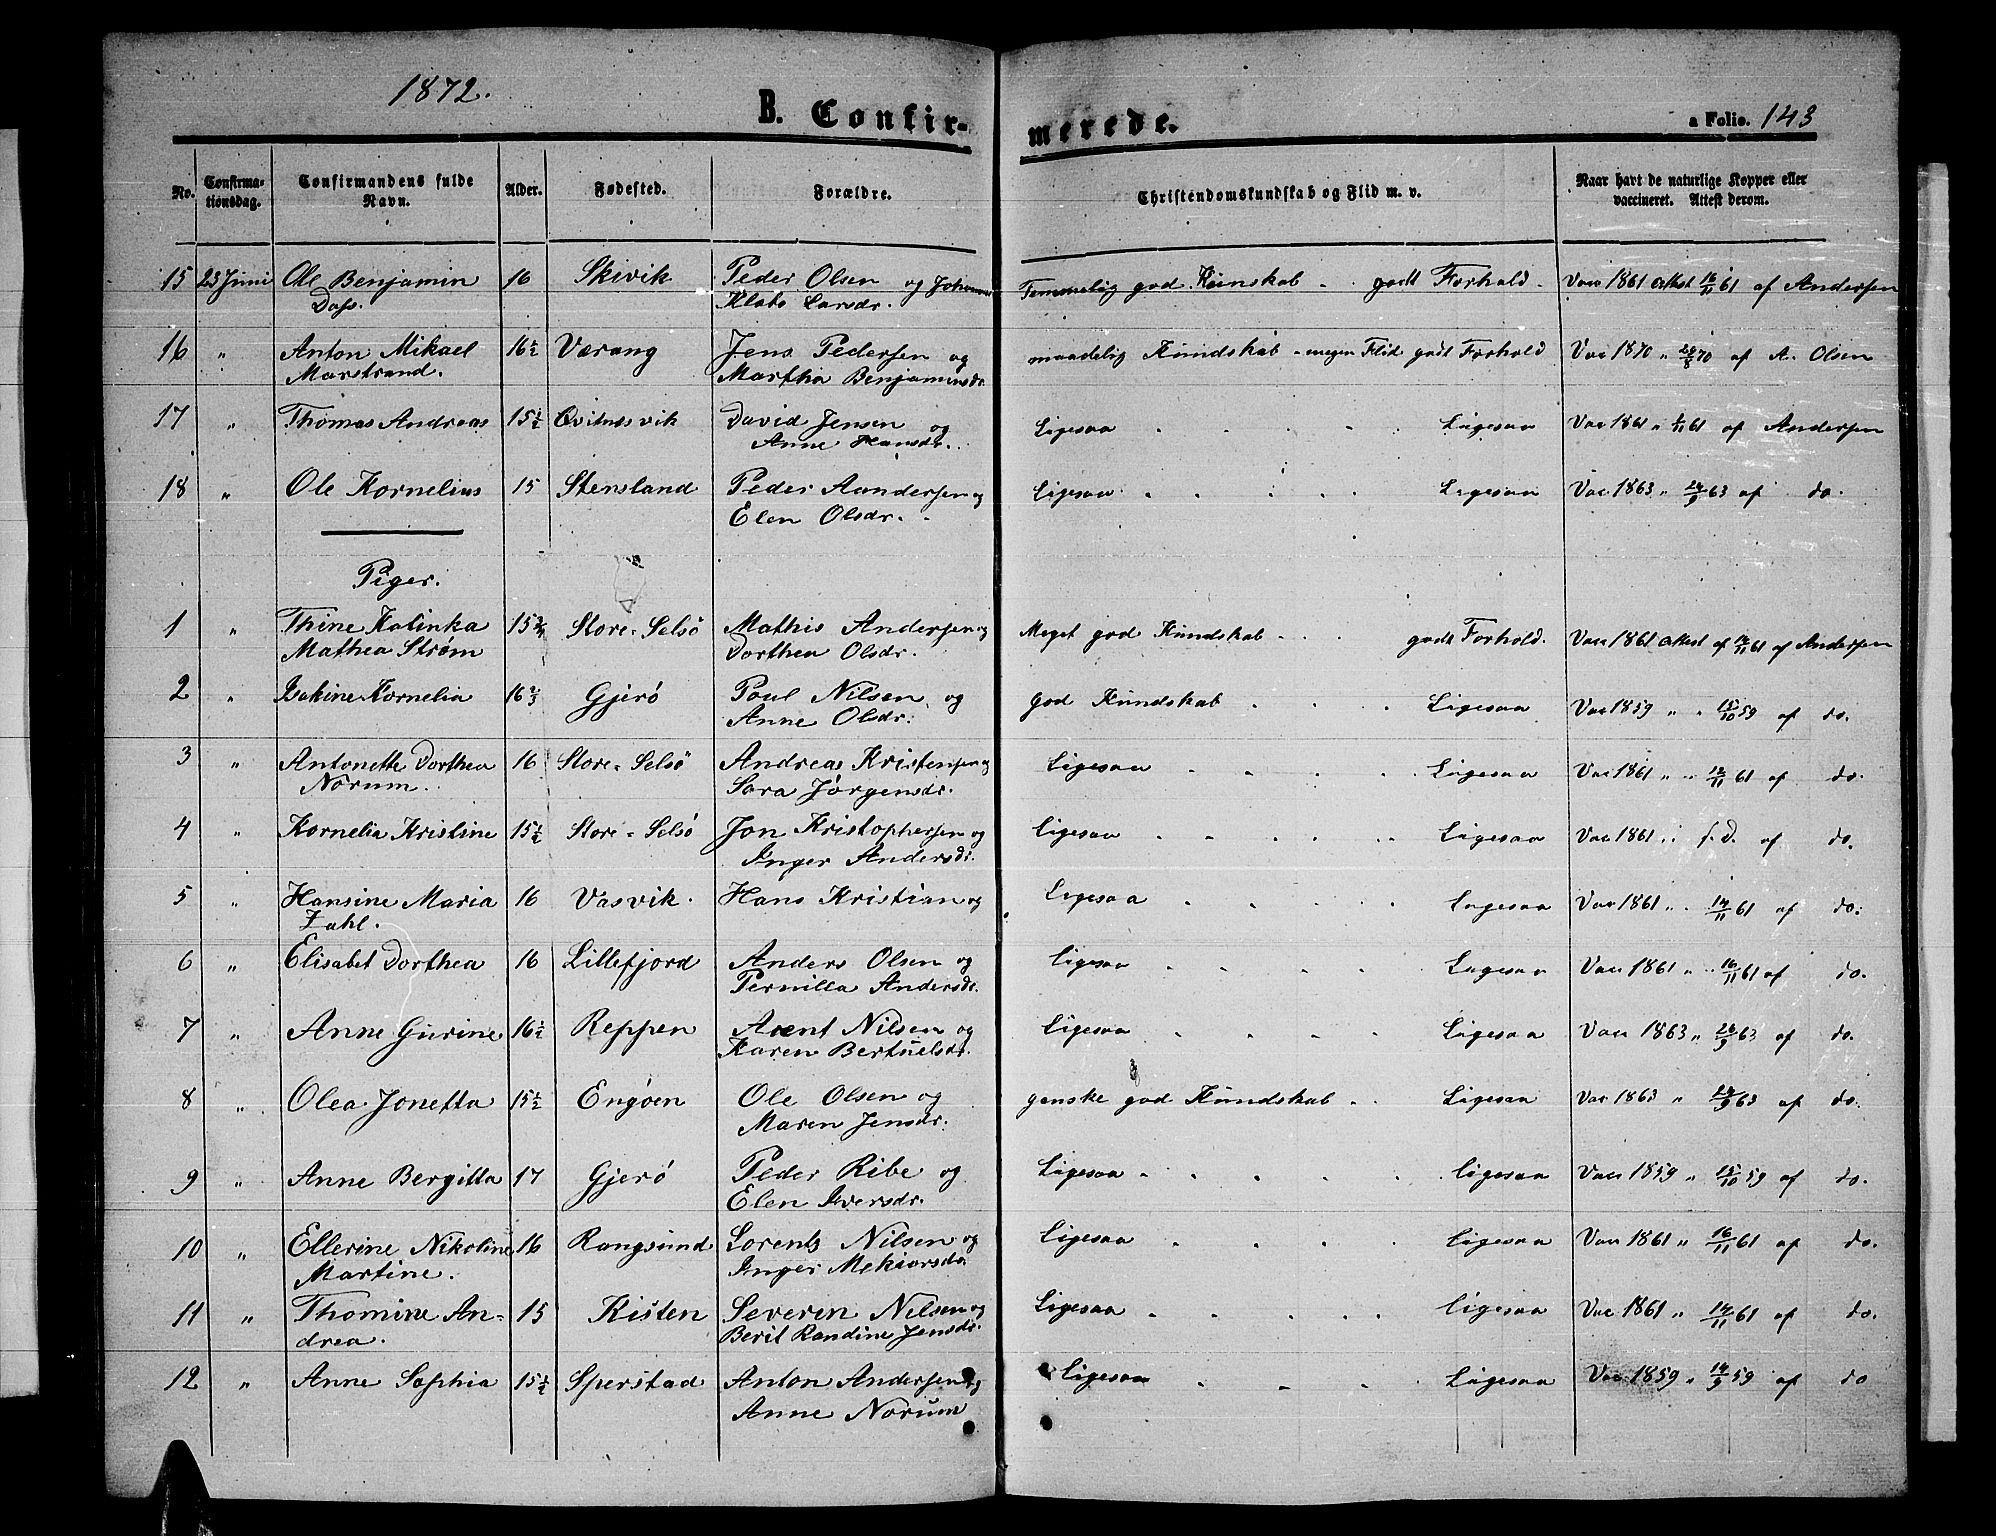 1872.
B. Confir-
merede.
a Folio. 143
No.
Confirma-
tionsdag.
Confirmandens fulde
Navn.
Alder.
Fødested.
Forældre.
Christendomskundskab og Flid m. v.
Naar havt de naturlige Kopper eller
vaccineret. Attest derom.
15 23 Juni Ole Benjamin 16 Skivik Peder Olsen og Temmelig god Kundskab godt Forhold. Vac 1861 attest 16/11 61 af Andersen
Dass. Larsdr.
16 " Anton Mikael 16½ Værang Jens Pedersen og maadelig Kundskab - megen Flid godt Forhold Vac 1870 " 28/8 70 af A. Olsen
Marstrand. Martha Benjaminsdr
17 " Thomas Andreas 15½ Qvitnesvik David Jensen og Ligesaa Ligesaa Vac 1861 " 61 af Andersen
Anne Hansdr.
18 " Ole Kornelius 15 Stensland Peder Aandersen og Ligesaa Ligesaa Vac 1863 " 24/9 63 af do.
Elen Olsdr.
Piger.
1 " Thine Kalinka 15 Store-Selsö Mathis Andersen og Meget god Kundskab godt Forhold. Vac 1861 attest af 14/11 61 af Andersen
Mathea Strøm Dorthea Olsdr.
2 " Isakine Kornelia 16⅔ Gjerö Poul Nilsen og god Kundskab Ligesaa Vac 1859 " " 15/10 59 af do.
Anne Olsdr.
3 " Antonette Dorthea 16 Store-Selsö Andreas Kristensen og Ligesaa Ligesaa Vac 1861 " " 12/11 61 af do.
Norum. Sara Jörgensdr.
4 " Kornelia Kristine 15½ Store-Selsö Jon Kristophersen og Ligesaa Ligesaa Vac 1861 " s. d. af do.
Inger Andersdr.
5 " Hansine Maria 16 Vasvik. Hans Kristian og Ligesaa Ligesaa Vac 1861 " 14/11 61 af do.
Zahl.
6 " Elisabet Dorthea 16 Lillefjord Anders Olsen og Ligesaa Ligesaa Vac 1861 " 16/11 61 af do.
Pernilla Andersdr.
7 " Anne Gurine 16½ Reppen Arent Nilsen og Ligesaa Ligesaa Vac 1863 " 26/9 63 af do.
Karen Bertuelsdr.
8 " Olea Jonetta 15½ Engöen Ole Olsen og ganske god Kundskab Ligesaa Vac 1863 " 24/9 63 af do.
Maren Jensdr.
9 " Anne Bergitta 17 Gjerö Peder Ribe og Ligesaa Ligesaa Vac 1859 " 15/10 59 af do.
Elen Iversdr.
10 " Ellerine Nikoline 16 Rangsund Lorents Nilsen og Ligesaa Ligesaa Vac 1861 " 16/11 61 af do.
Martine. Inger Mekiorsdr
11 " Thomine An- 15 Kisten Severin Nilsen og Ligesaa Ligesaa Vac 1861 " 14/11 61 af do.
drea. Berit Randine Jensdr.
12 " Anne Sophia 15½ Sperstad Anton Andersen og Ligesaa Ligesaa Vac 1859 " 14/9 59 af do
Anne Norum